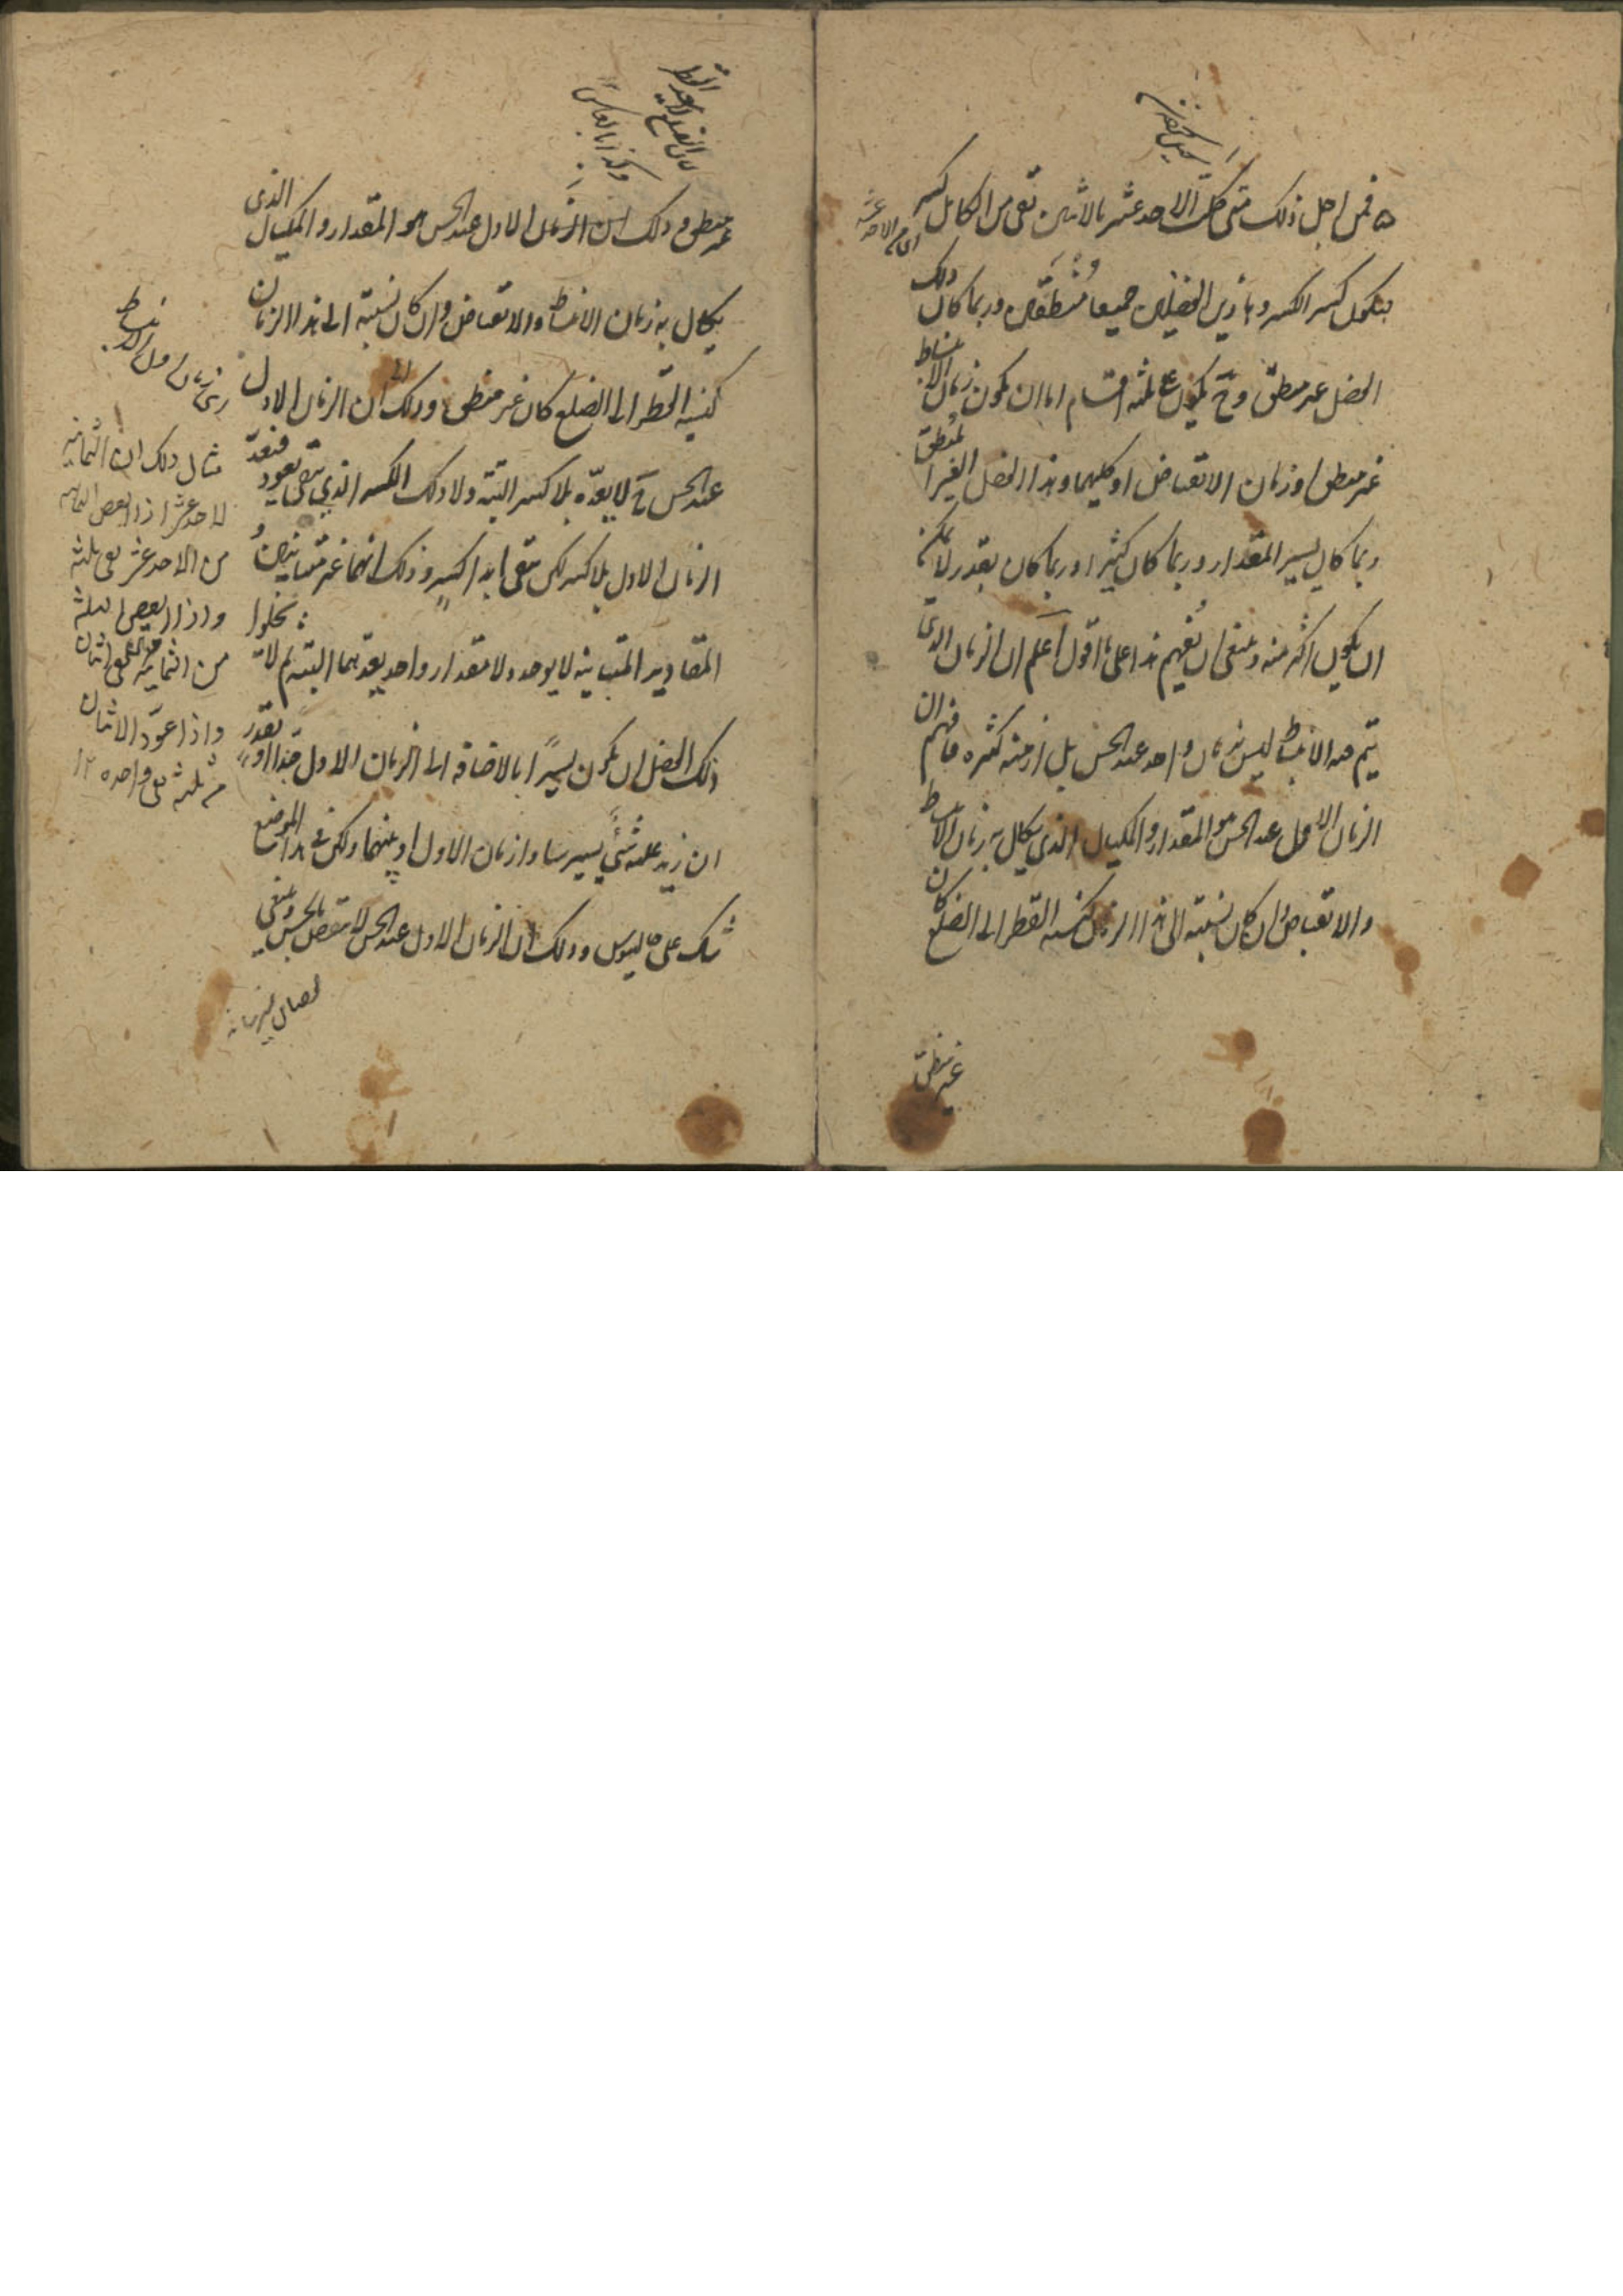 فمن اجل ذلك متى كلت الاحد عشر بالاثنين تبقى من الكامل كسر
فيكون كسر الكسر وهاذين الفضلين جميعا منطقين وربما كان ذلك
الفضل غير منطق وح يكون على ثلثة اقسام اما ان يكون زمان الانبساط
غير منطق او زمان الانقباض او كليهما وهذا الفضل الغير المنطق
ربما كان يسير المقدار وربما كان كثيرا وربما كان بقدر لا يمكن
ان يكون اكثر منه وينبغى ان تفهم هذا على ما اقول اعلم ان الزمان الذى
يتم فيه الانبساط ليس زمان واحد عند الحس بل ازمنة كثيرة فافهم ان
الزمان الاول عند الحس هو المقدار والمكيال الذى يكال به زمان الانبساط
والانقباض وان كان نسبته الى هذا الزمان كنسبة القطر الى الضلع كان
غير منطق
غير منطق وذلك ان الزمان الاول عند الحس هو المقدار والمكيال الذى
يكال به زمان الانبساط والانقباض وان كان نسبته الى هذا الزمان
كنسبة القطر الى الضلع كان غير منطق وذلك ان الزمان الاول
عند الحس ح لا يعده بلا كسر البتة ولا ذلك الكسر الذي تبقى يعود فيعد
الزمان الاول بلا كسر لكن تبقى ابدا كسر وذلك انهما غير متباينين
المقادير المتباينة لا يوجد ولا مقدار واحد يعدهما البتة ثم لا يخلوا
ذلك الفضل ان يكون يسيرا بالاضافة الى الزمان الاول جدا او بقدر
ان زيد عليه شئ يسير ساوا زمان الاول او بينهما ولكن في هذا الموضع
شك على جالينوس وذلك ان الزمان الاول عند الحس لا ينقص بالحس وينبغى
مثال ذلك ان الثمانية
لاحد عشر اذا نقص الثمانية
من الاحد عشر بقى ثلثة
واذا نقص الثلثة
من الثمانية بقى اثنان
واذا عود الاثنان
من ثلثة بقى واحده ١٢